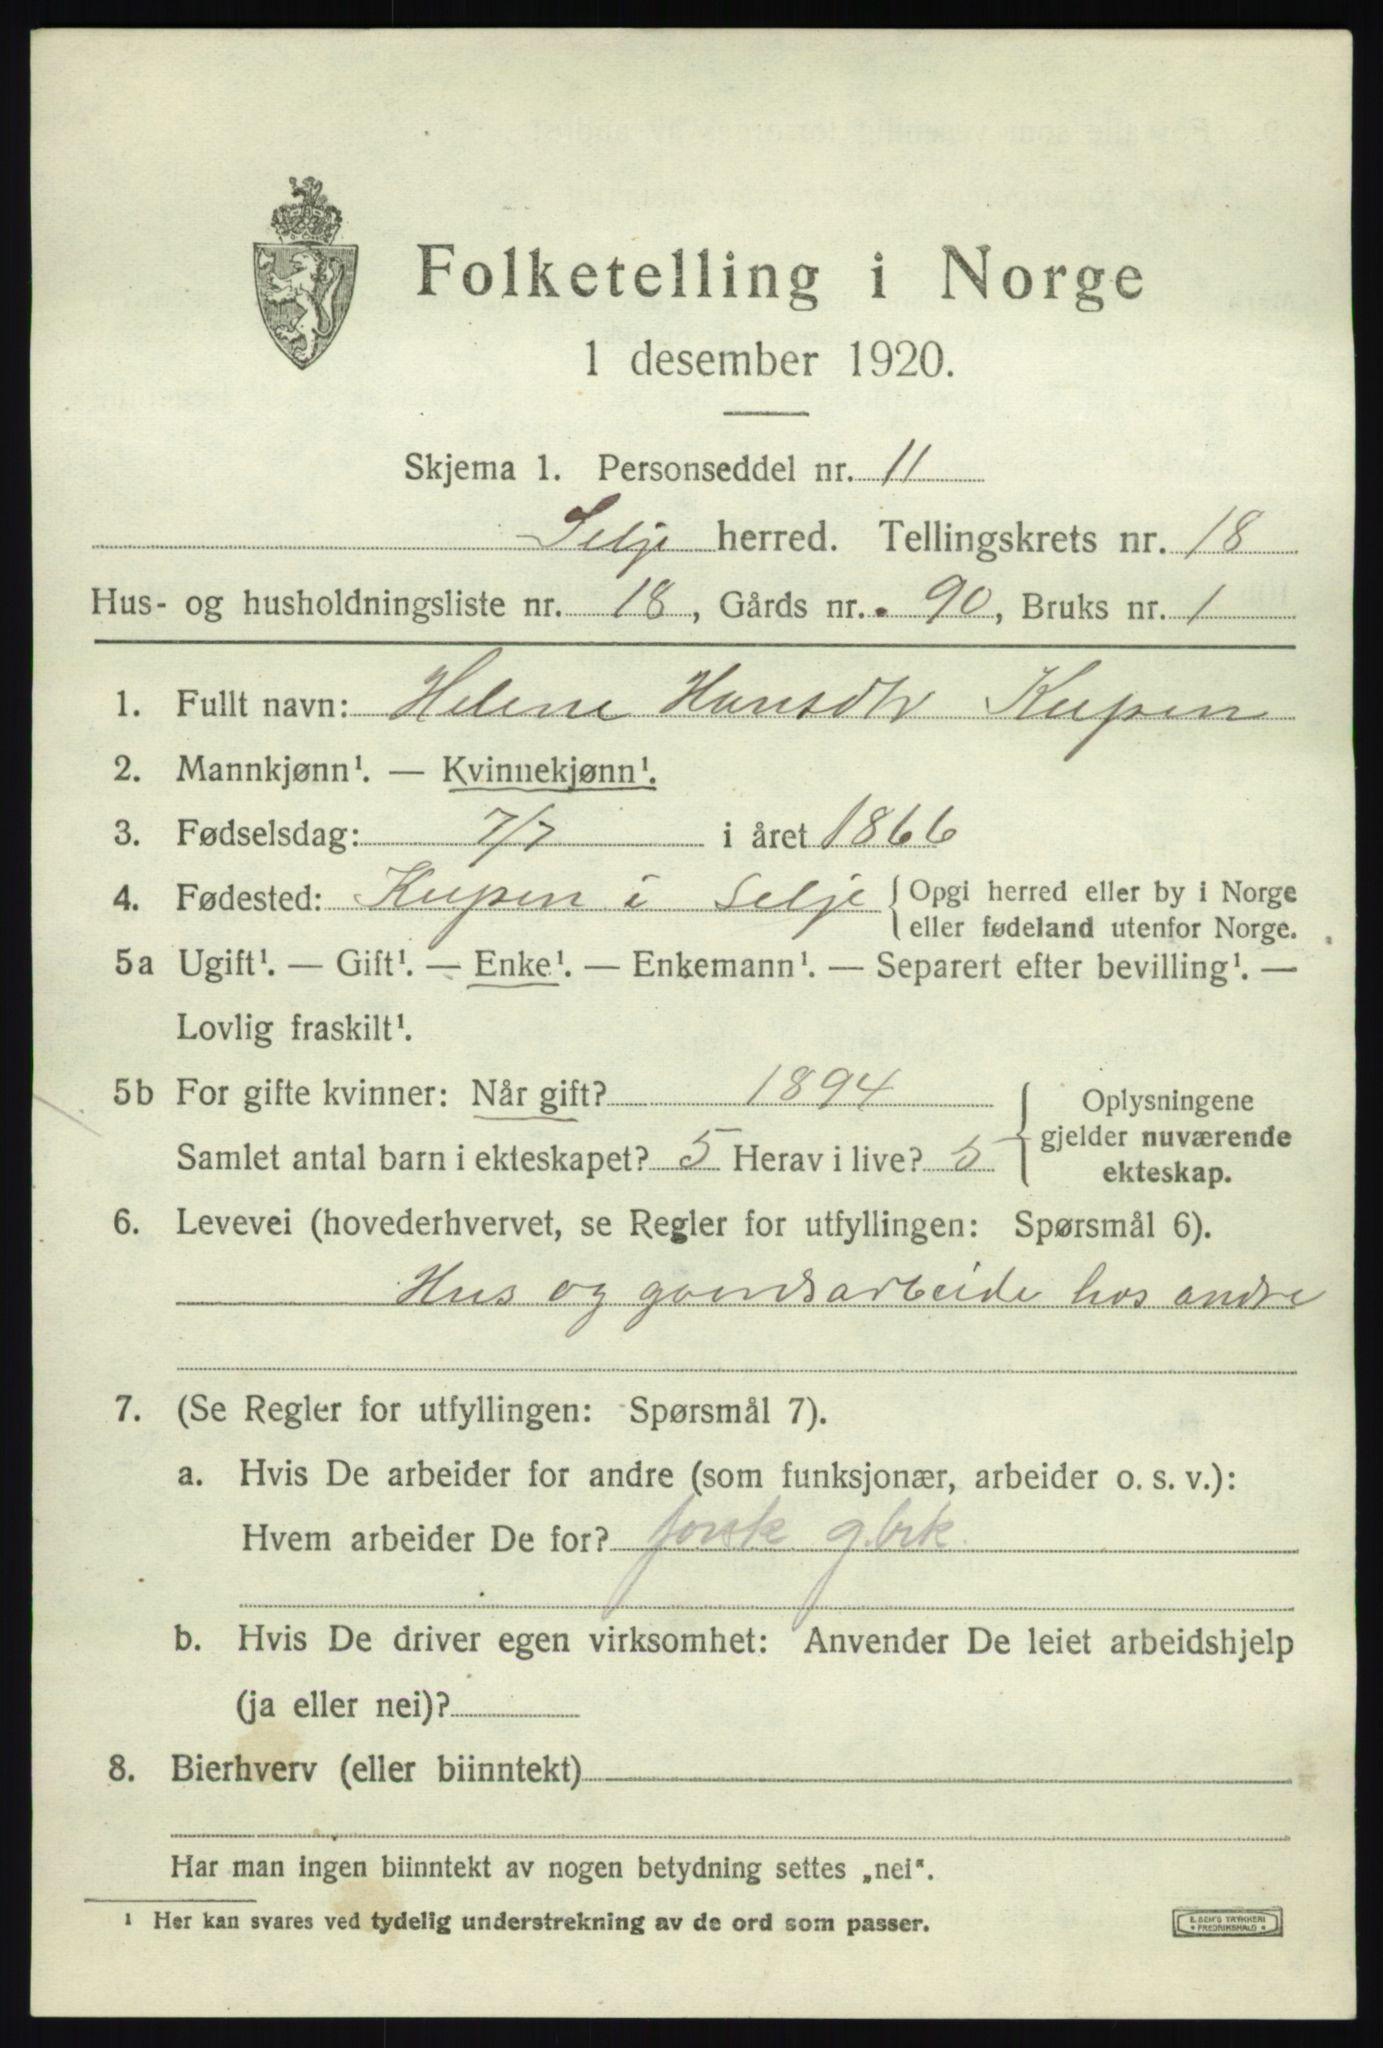 Folketelling i Norge
1 desember 1920.
Skjema 1. Personseddel nr. 11
Selje herred. Tellingskrets nr. 18
Hus- og husholdningsliste nr. 18, Gårds nr. 90, Bruks nr. 1
1. Fullt navn: Helene Hansdtr Kupen
2. Mannkjønn¹. — Kvinnekjønn¹.
3. Fødselsdag: 7/7 i året 1866
4. Fødested: Kupen i Selje { Opgi herred eller by i Norge
eller fødeland utenfor Norge.
5a Ugift¹. — Gift¹. — Enke¹. — Enkemann¹. — Separert efter bevilling¹. —
Lovlig fraskilt¹.
5b For gifte kvinner: Når gift? 1894
Samlet antal barn i ekteskapet? 5 Herav i live? 5
Oplysningene
gjelder nuværende
ekteskap.
6. Levevei (hovederhvervet, se Regler for utfyllingen: Spørsmål 6).
Hus og gaardsarbeide hos andre
7. (Se Regler for utfyllingen: Spørsmål 7).
a. Hvis De arbeider for andre (som funksjonær, arbeider o. s. v.):
Hvem arbeider De for? forsk g.brk.
b. Hvis De driver egen virksomhet: Anvender De leiet arbeidshjelp
(ja eller nei)?
8. Bierhverv (eller biinntekt)
Har man ingen biinntekt av nogen betydning settes „nei".
¹ Her kan svares ved tydelig understrekning av de ord som passer.
E. SEM'S TRYKKERI
* FREDRIKSHALD *